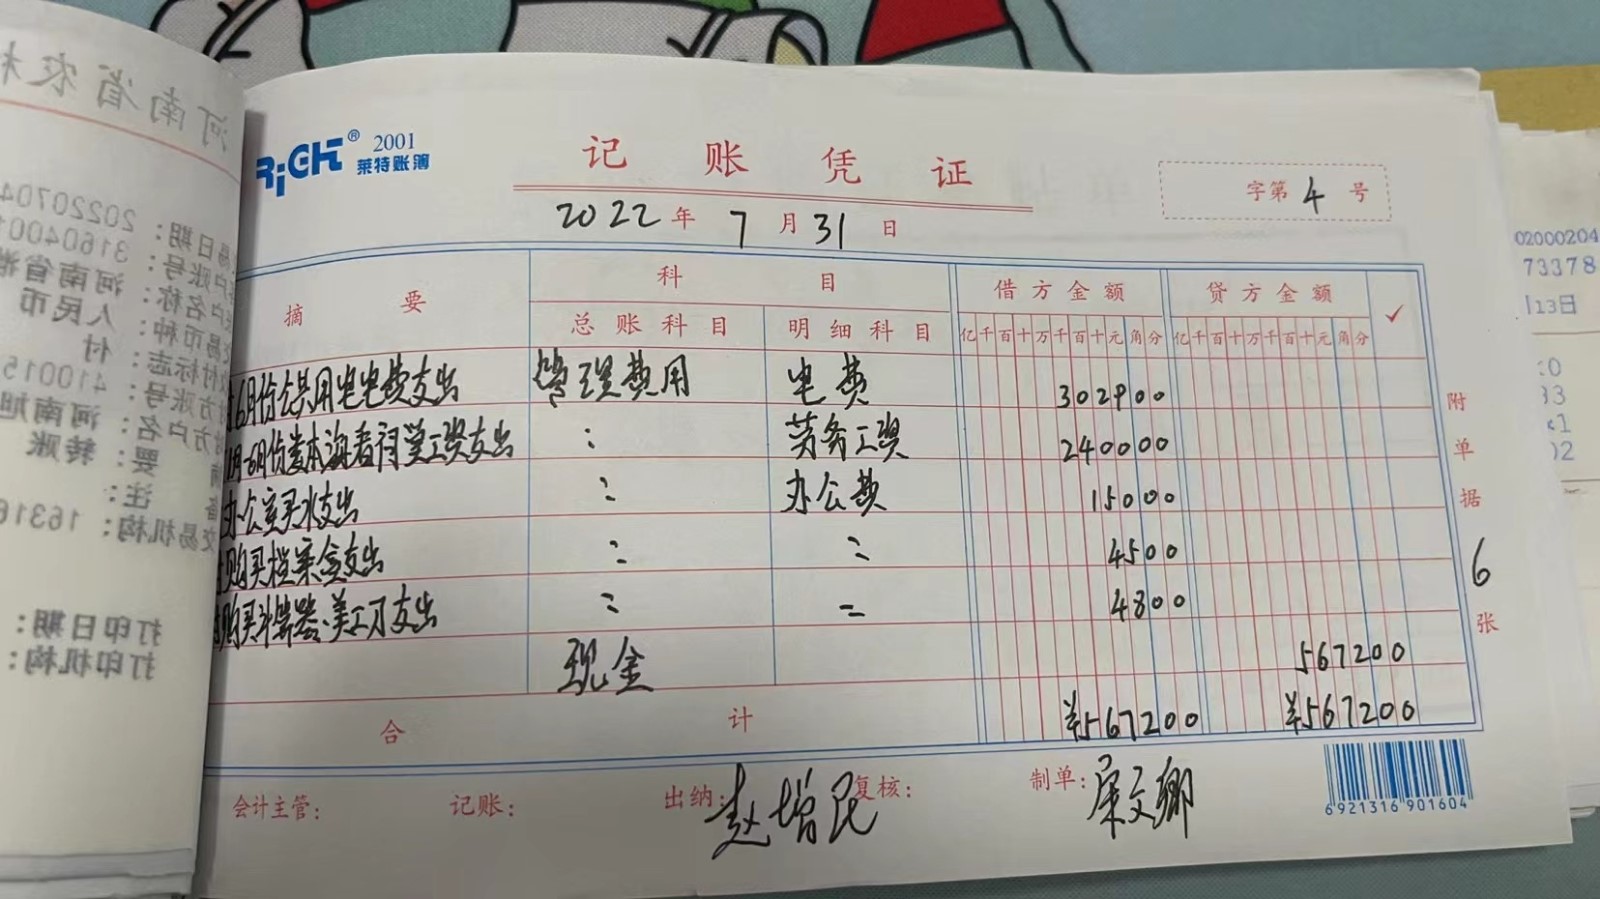 RiCH® 2001
莱特账簿
记账凭证
2022年7月31日
字第4号
摘要 科目 借方金额 贷方金额 ✓
总账科目 明细科目 亿千百十万千百十元角分 亿千百十万千百十元角分
6月份公共用电电费支出 管理费用 电费 302900
劳务工资 240000
办公室买水支出 : 办公费 15000
购买档案盒支出 4500
美工刀支出 4800
现金 567200
合计 ¥567200 ¥567200
附单据6张
会计主管: 记账: 出纳:赵增民 复核: 制单:
6 921316 901604
河南省农村
日期:2022070
账号:3160400
户名称:河南省
币种:人民币
标志:付
账号:410015
户名:河南旭
要:转账
注:
交易机构:16316
打印日期:
打印机构:
02000204
73378
13日